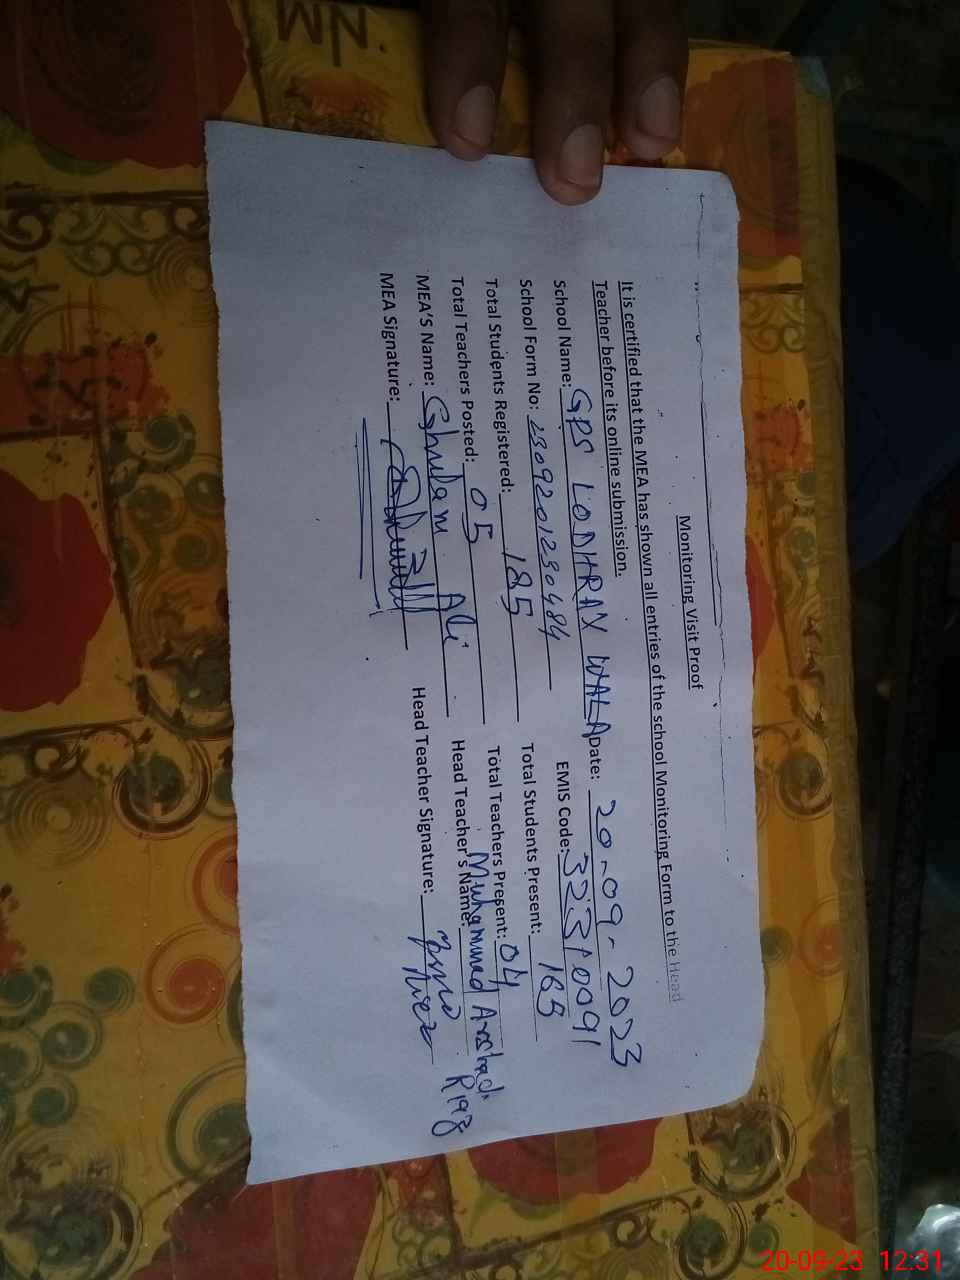 Monitoring Visit Proof
It is certified that the MEA has shown all entries of the school Monitoring Form to the Head
Teacher before its online submission.
School Name: GPS LODHRAN WALA Date: 20-09-2023
School Form No: 2309201230484 EMIS Code: 32310091
Total Students Registered: 185 Total Students Present: 165
Total Teachers Posted: 05 Total Teachers Present: 04
MEA'S Name: Ghulam Ali Head Teacher's Name: Muhammad Arshad Riaz
MEA Signature: Head Teacher Signature:
NM
20-09-23 12:31